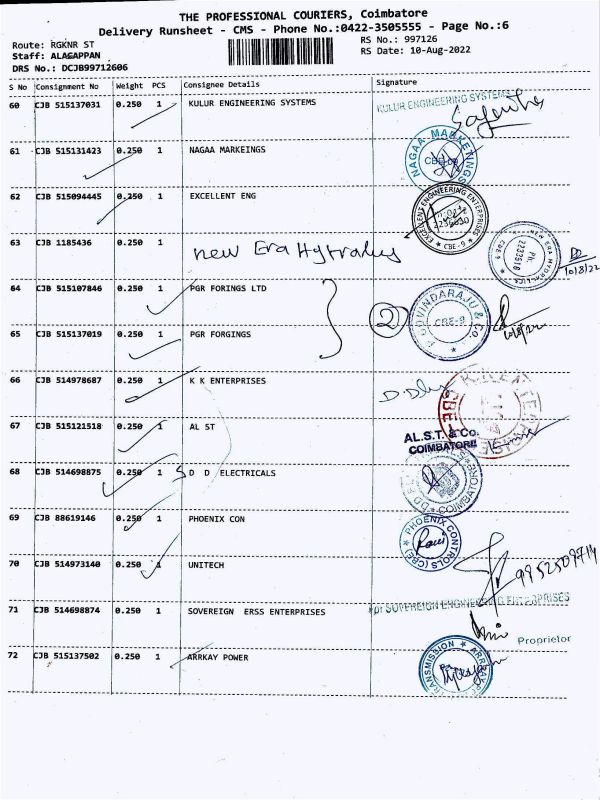 THE PROFESSIONAL COURIERS, Coimbatore
Delivery Runsheet - CMS - Phone No.:0422-3505555 - Page No.:6
Route: RGKNR ST
RS No.: 997126
Staff: ALAGAPPAN
RS Date: 10-Aug-2022
DRS No.: DCJB99712606
S No Consignment No Weight PCS Consignee Details Signature
60 CJB 515137031 0.250 1 KULUR ENGINEERING SYSTEMS
KULUR ENGINEERING SYSTEMS
61 CJB 515131423 0.250 1 NAGAA MARKEINGS
NAGAA MARKETINGS
62 CJB 515094445 0.250 1 EXCELLENT ENG
EXCELLENT ENGINEERING ENTERPRISES
* CBE-9 *
63 CJB 1185436 0.250 1 new Era Hytradus
NEW ERA HYDRAULICS
PH:
2233516
CBE 9
10/8/22
64 CJB 515107846 0.250 1 PGR FORINGS LTD
GOVINDARAJU & Co.
CBE-9
2
65 CJB 515137019 0.250 1 PGR FORGINGS
66 CJB 514978687 0.250 1 K K ENTERPRISES
67 CJB 515121518 0.250 1 AL ST
AL.S.T. & Co.
COIMBATORE
68 CJB 514698875 0.250 1 D D ELECTRICALS
69 CJB 88619146 0.250 1 PHOENIX CON
PHOENIX CONTROLS (CBE)
Ravi
70 CJB 514973140 0.250 1 UNITECH
9952509714
71 CJB 514698874 0.250 1 SOVEREIGN ERSS ENTERPRISES
For SOVEREIGN ENGINEERING ENTERPRISES
Proprietor
72 CJB 515137502 0.250 1 ARRKAY POWER
TRANSMISSION * ARRKAY